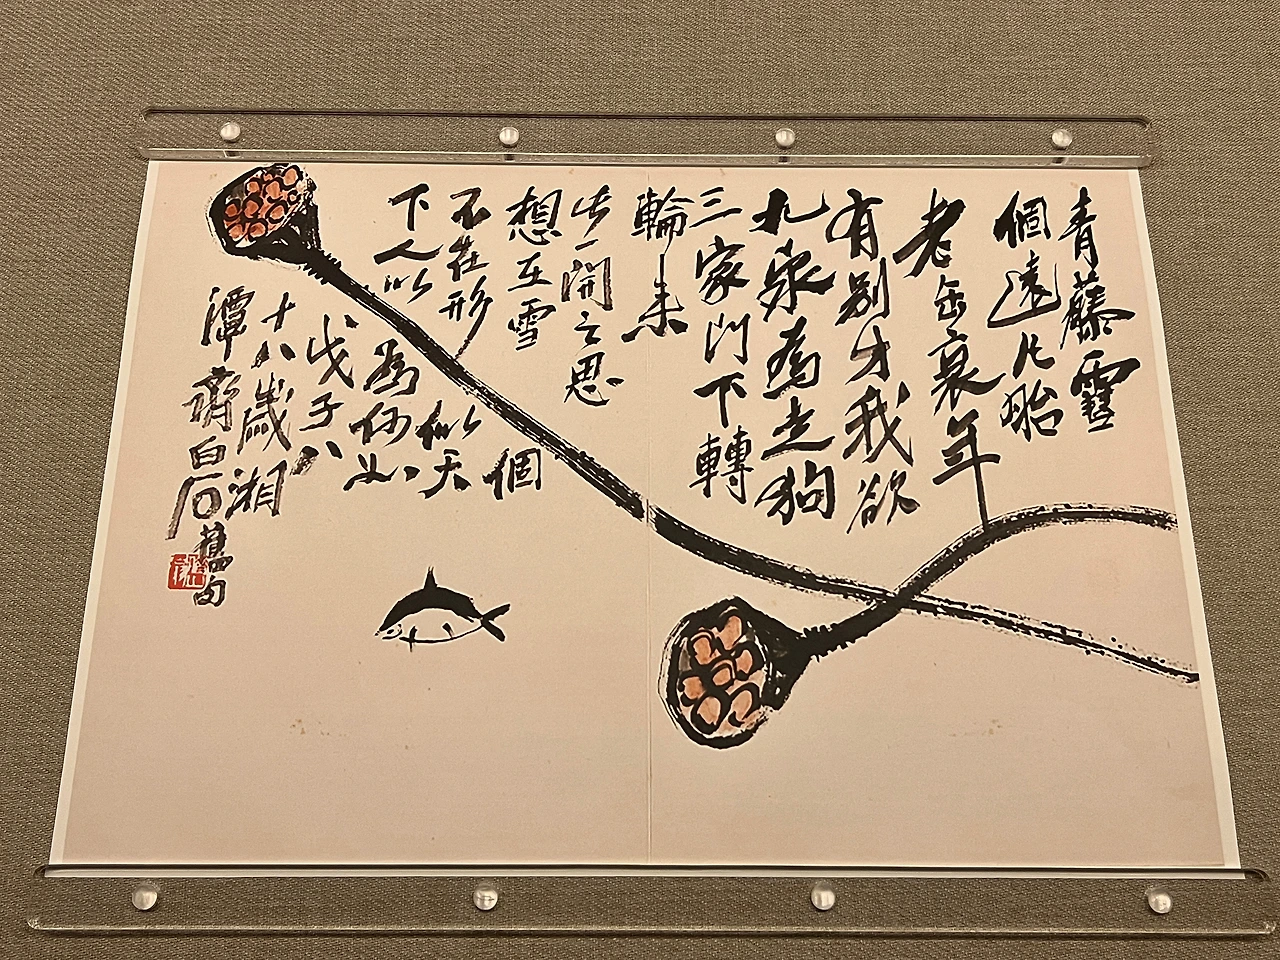 青藤雪
個遠凡胎
老缶衰年
有別才我欲
九泉為走狗
三家門下轉
輪來
此一開之思
想雪個
不在形似天
下人以為何如
戊子八
十八歲湘
潭齊白石舊句